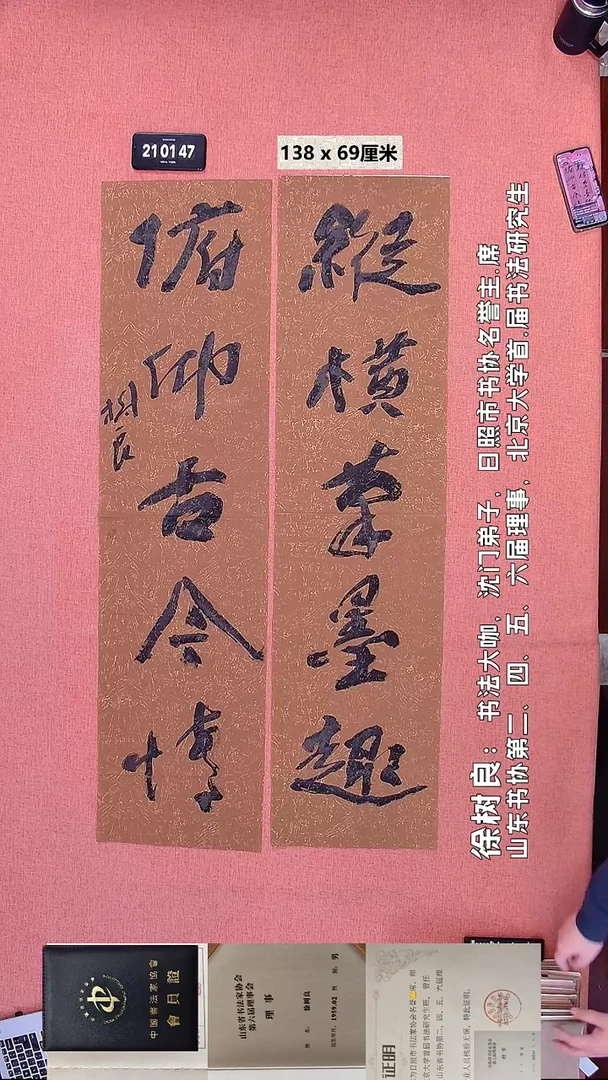 21 01 47
138 x 69厘米
縱橫筆墨趣
俯仰古今情
树良
徐树良：书法大咖，沈门弟子，日照市书协名誉主.席
山东书协第二、四、五、六届理事，北京大学首.届书法研究生
中国書法家協會
會員證
山东省书法家协会
第六届理事会
理事
姓名：徐树良
性别：男
出生年月：1959.02
证明